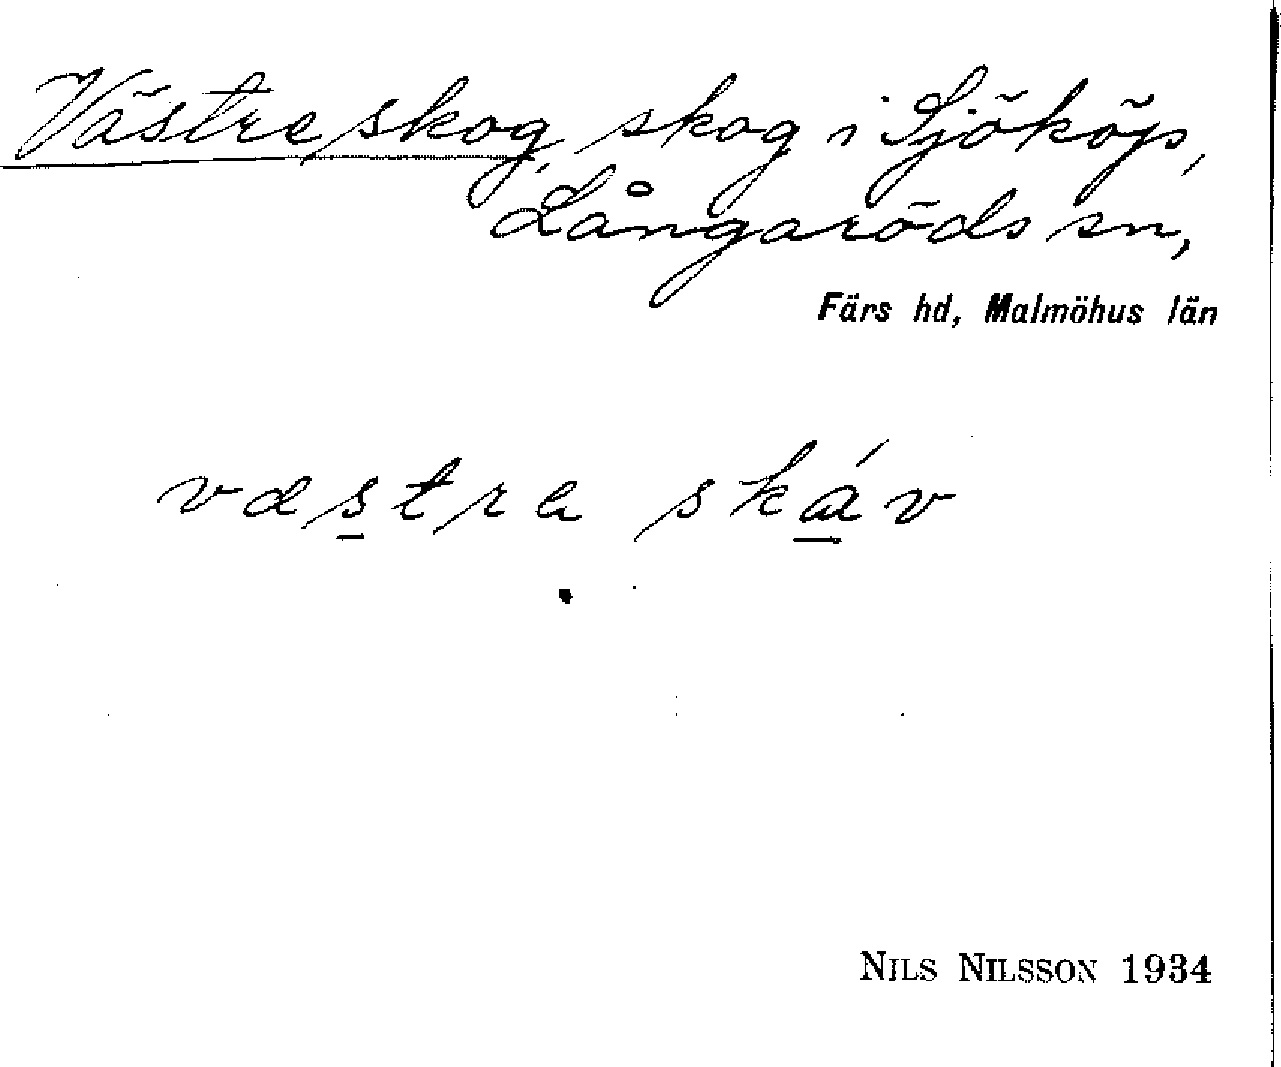 Västreskog, skog i Sjököp,
Långaröds sn,
Färs hd, Malmöhus län
væstra skáv
NILS NILSSON 1934